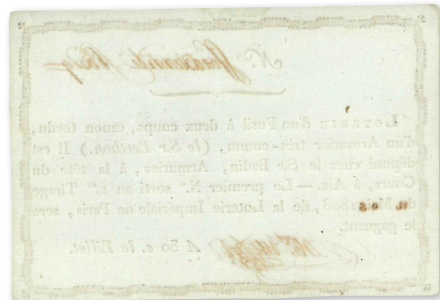 N.º
LOTERIE d'un Fusil à deux coups, canon tordu,
d'un Armurier très-connu, (le Sr. Berthon.) Il est
déposé chez le Sr. Badin, Armurier, à la tête du
Cours, à Aix. — Le premier N.º sorti au 1.er Tirage
de 1808, de la Loterie Impériale de Paris, sera
le gagnant.
A 30 c. le Billet.